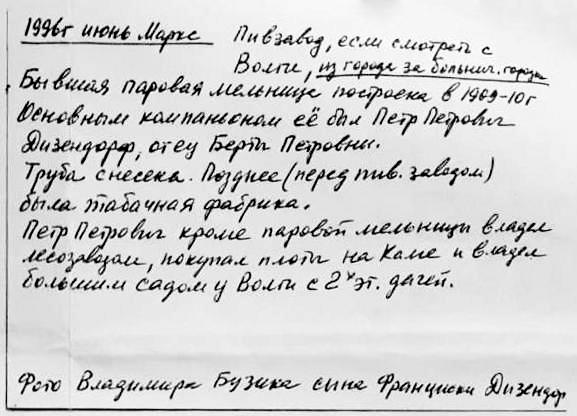 1996г июнь Маркс Пивзавод, если смотреть с
Волги, из города за больнич. города
Бывшая паровая мельница построена в 1909-10г
Основным компаньоном её был Петр Петрович
Дизендорф, отец Берты Петровны.
Труба снесена. Позднее (перед пив. заводом)
была табачная фабрика.
Петр Петрович кроме паровой мельницы владел
лесозаводом, покупал плоты на Каме и владел
большим садом у Волги с 2х эт. дачей.
Фото Владимира Бузика сына Франциски Дизендор